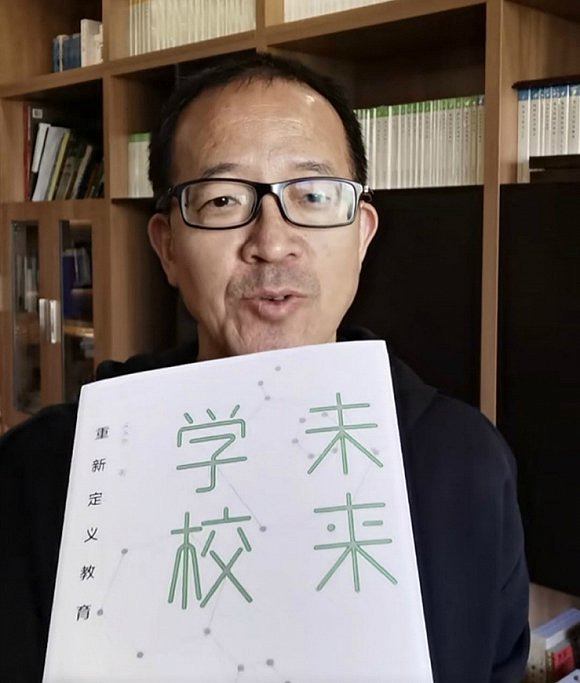 未来
学校
重新定义教育